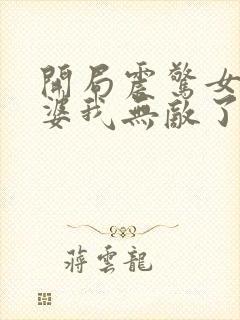 開局震驚女
婆我無敵了
蔣雲龍